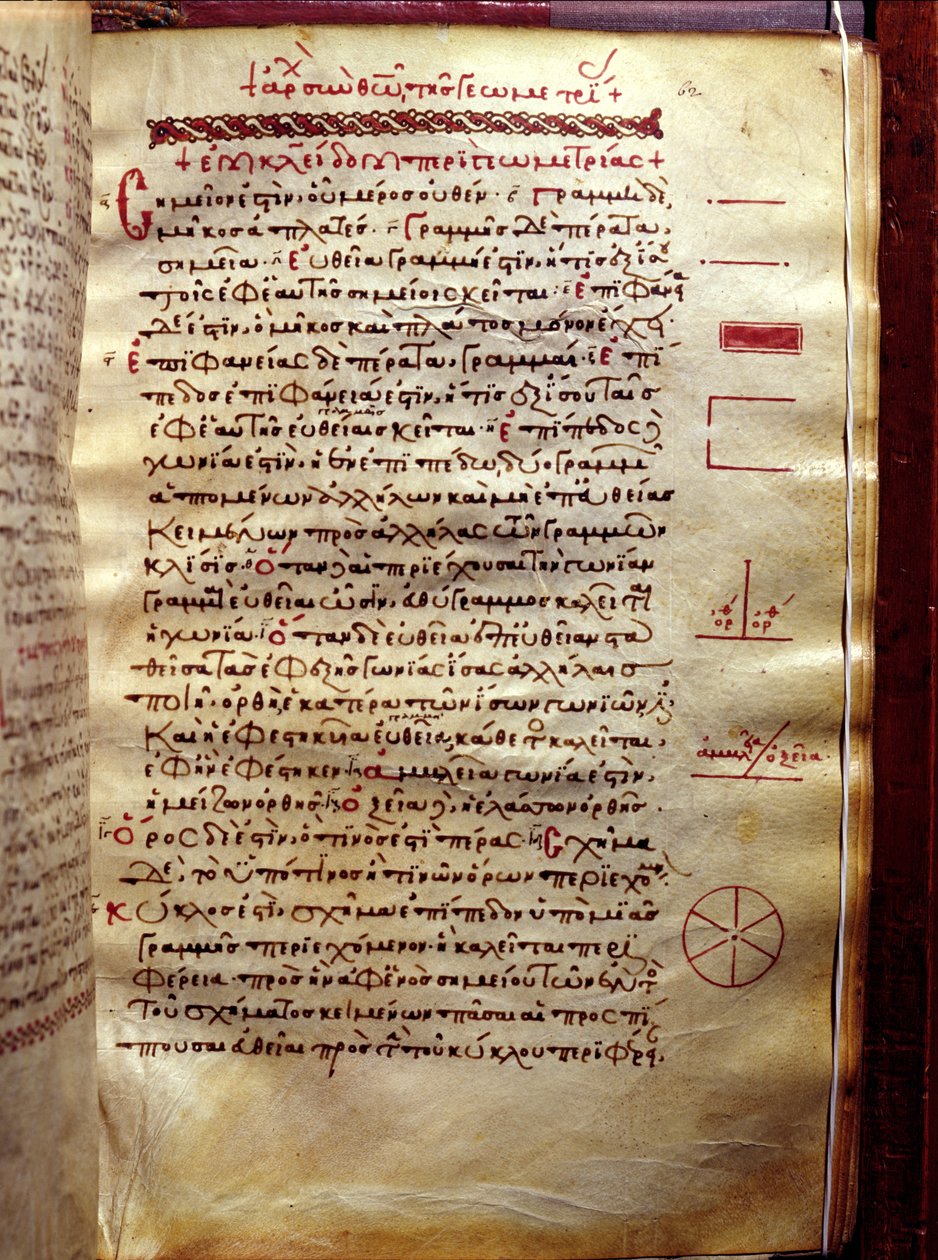 + ἀρχ σὺν θω, τῆς γεωμετρί +
62
+ εὐκλείδου περὶ γεωμετρίας +
Σημεῖον ἐστὶν, οὗ μέρος οὐθέν · β Γραμμὴ δὲ,
μῆκος ἀπλατές · γ Γραμμῆς δὲ πέρατα,
σημεῖα · δ Εὐθεῖα γραμμὴ ἐστὶν, ἥτις ἐξίσου
τοῖς ἐφ' ἑαυτῆς σημείοις κεῖται · ε Ἐπιφάνεια
δέ ἐστιν, ὃ μῆκος καὶ πλάτος μόνον ἔχει ·
Ἐπιφανείας δὲ πέρατα, γραμμαί · ζ Ἐπί
πεδος ἐπιφάνειά ἐστιν, ἥτις ἐξίσου ταῖς
ἐφ' ἑαυτῆς εὐθείαις κεῖται · η Ἐπίπεδος δὲ
γωνία ἐστὶν, ἡ ἐν ἐπιπέδῳ, δύο γραμμῶν
ἁπτομένων ἀλλήλων καὶ μὴ ἐπ' εὐθείας
κειμένων πρὸς ἀλλήλας τῶν γραμμῶν
κλίσις · θ Ὅταν δὲ αἱ περιέχουσαι τὴν γωνίαν
γραμμαὶ εὐθεῖαι ὦσιν, εὐθύγραμμος καλεῖται
ἡ γωνία · ι Ὅταν δὲ εὐθεῖα ἐπ' εὐθεῖαν στα
θεῖσα τὰς ἐφεξῆς γωνίας ἴσας ἀλλήλαις
ποιῆ, ὀρθὴ ἑκατέρα τῶν ἴσων γωνιῶν ἐστι ·
Καὶ ἡ ἐφεστηκυῖα εὐθεῖα, κάθετος καλεῖται,
ἐφ' ἣν ἐφέστηκεν · ἀμβλεῖα γωνία ἐστὶν,
ἡ μείζων ὀρθῆς · ιβ Ὀξεῖα δὲ, ἡ ἐλάσσων ὀρθῆς ·
Ὅρος δέ ἐστιν, ὅ τινός ἐστι πέρας · ιδ Σχῆμα
δὲ, τὸ ὑπό τινος ἤ τινων ὅρων περιεχόμενον ·
Κύκλος ἐστὶ, σχῆμα ἐπίπεδον ὑπὸ μιᾶς
γραμμῆς περιεχόμενον · ἣ καλεῖται περι
φέρεια · πρὸς ἣν ἀφ' ἑνὸς σημείου τῶν ἐντὸς
τοῦ σχήματος κειμένων πᾶσαι αἱ προσπί
πτουσαι εὐθεῖαι πρὸς τὴν τοῦ κύκλου περιφέρειαν,
ὀρθ ὀρθ
ἀμβλεῖα ὀξεῖα